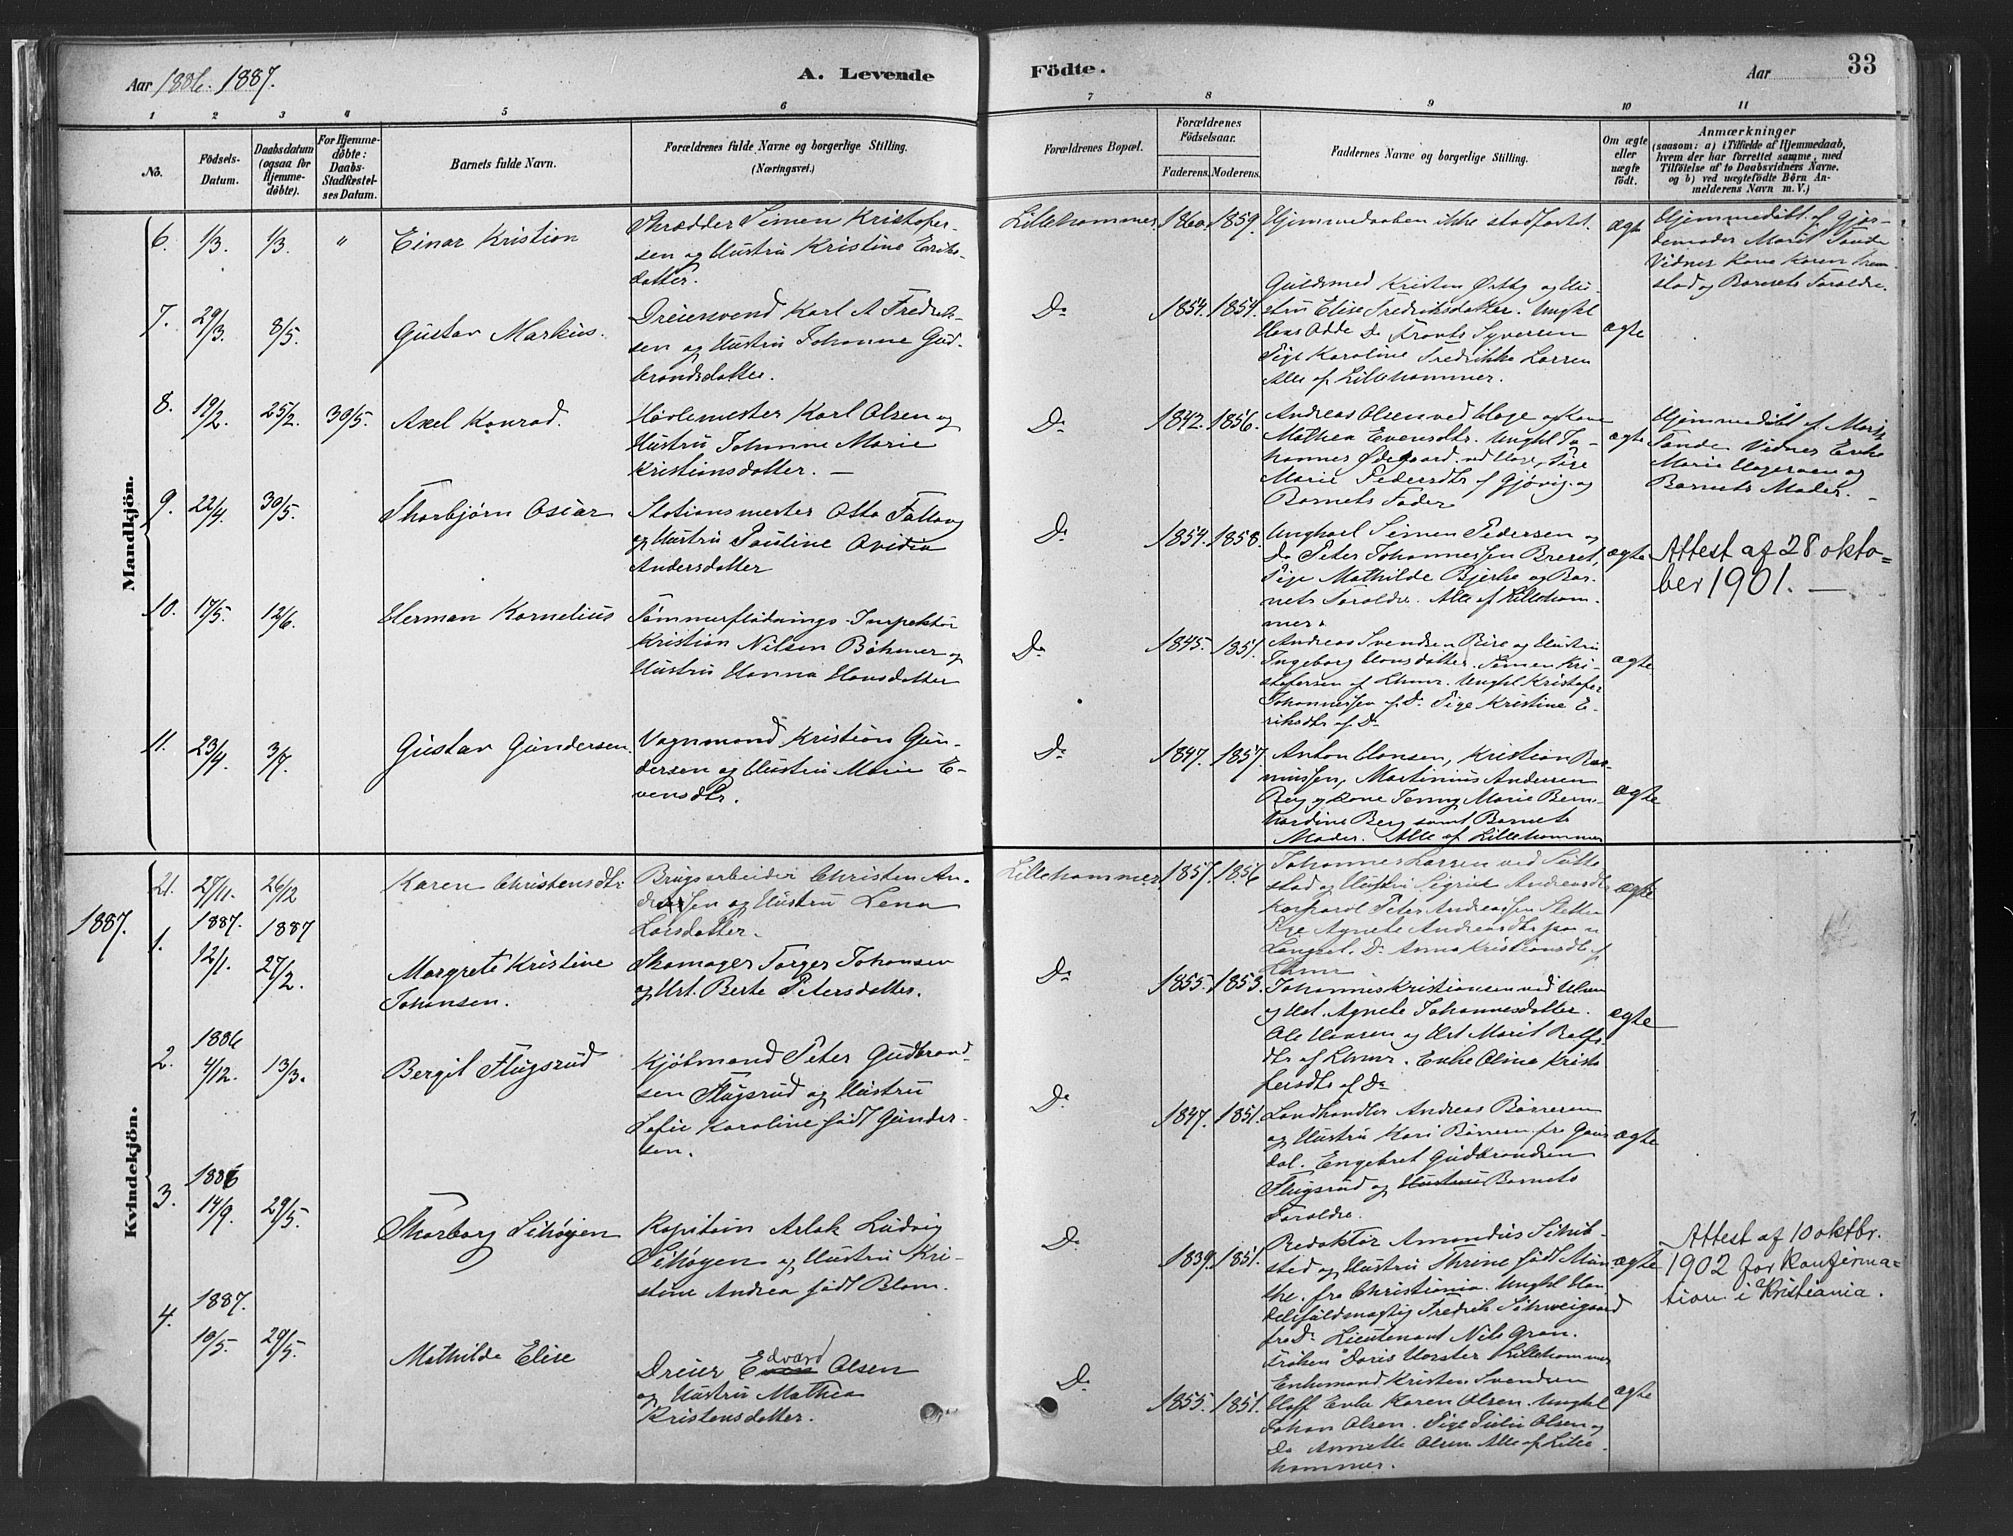 Aar 1886. 1887.
A. Levende
Födte.
Aar
33
1 2 3 4 5 6 7 8 9 10 11
No.
Födsels-
Datum.
Daabsdatum
(ogsaa for
Hjemme-
döbte).
For Hjemme-
döbte:
Daabs-
Stadfæstel-
ses Datum.
Barnets fulde Navn.
Forældrenes fulde Navne og borgerlige Stilling.
(Næringsvei.)
Forældrenes Bopæl.
Forældrenes
Födselsaar.
Faderens. Moderens.
Faddernes Navne og borgerlige Stilling.
Om ægte
eller
uægte
födt.
Anmærkninger
(saasom: a) i Tilfælde af Hjemmedaab,
hvem der har forrettet samme, med
Tilföielse af to Daabsvidners Navne,
og b) ved uægtefödte Börn An-
melderens Navn m. V.)
Mandkjön.
6. 1/3. 1/3. "
Einar Kristian
Skrædder Simen Kristofer-
sen og Hustru Kristine Eriks-
datter.
Lillehammer. 1860. 1859.
Hjemmedaaben ikke stadfæstet.
ægte
Hjemmedöbt af Gjor-
demoder Marit Sande
Vidner Kone Karen
stad og Barnets Forældre.
7. 29/3. 8/5.
Gustav Markus.
Dreiersvend Karl A Fredrik-
sen og Hustru Johanne Gud-
brandsdatter.
Do 1854. 1854.
Guldsmed Kristen Østby og Hu-
stru Elise Fredriksdatter. Ungkl
Hans Odde Do Frants Syversen
Pige Karoline Fredrikke Larsen
Alle af Lillehammer.
ægte
8. 19/2. 25/2. 30/5.
Axel Konrad.
Høvlemester Karl Olsen og
Hustru Johanne Marie
Kristiansdatter. —
Do 1842. 1856.
Andreas Olsen ved Hage og Kone
Mathea Evensdtr. Ungkl Jo-
hannes Ødegaard ved Hage, Pige
Marie Pedersdtr af Gjøvig og
Barnets Fader
ægte
Hjemmedöbt af Marit
Sande Vidner Enke
Marie Hageroen og
Barnets Moder. —
9. 22/4. 30/5.
Thorbjørn Oscar
Stationsmester Otto Falla og
og Hustru Pauline Ovidia
Andersdatter
Do 1854. 1858.
Ungkarl Simen Pedersen og
Do Peter Johannessen Breset,
Pige Mathilde Bjerke og Bar-
nets Forældre. Alle af Lilleham-
mer.
ægte
Attest af 28 okto-
ber 1901. —
10. 17/5. 12/6.
Herman Kornelius
Tømmerflødnings-Inspektør
Kristian Nilsen Bøhmer og
Hustru Hanna Hansdatter
Do 1845. 1851.
Andreas Svendsen Bire og Hustru
Ingeborg Hansdatter. Simen Kri-
stofersen af Lhmr. Ungkl Kristofer
Johannessen af Do Pige Kristine E-
riksdtr af Do
ægte
11. 23/4. 3/7.
Gustav Gundersen
Vognmand Kristian Gun-
dersen og Hustru Marie E-
vensdtr.
Do 1847. 1857.
Anton Hansen, Kristian Ras-
mussen, Martinius Andersen
Berg og Kone Jenny Marie Bern-
hardine Berg samt Barnets
Moder. Alle af Lillehammer
ægte
Kvindekjön.
1887.
21. 27/11. 26/12
Karen Christensdtr
Brugsarbeider Christen An-
dreassen og Hustru Lena
Larsdatter.
Lillehammer 1857. 1856.
Johannes Larsen ved Sutte-
stad og Hustru Sigrid Andreasdtr
Korporal Peter Andreassen
Pige Agnete Andreasdtr
Do Anna Kristiansdtr af
Lhmr
ægte
1887. 1887
1. 12/1. 27/2.
Margrete Kristine
Johansen.
Skomager Torger Johansen
og Hst. Berte Petersdatter.
Do 1855. 1853.
Johannes Kristiansen ved
og Hst. Agnete Johannesdatter.
Ole Hansen og Hst Marit
dtr af Lhmr. Enke Olina Kristo
fersdtr af Do
ægte
1886
2. 4/12. 13/3.
Bergit Flugsrud
Kjøbmand Peter Gudbrand-
sen Flugsrud og Hustru
Sofie Karoline født Gunder-
sen.
Do 1847. 1851.
Landhandler Andreas Børresen
og Hustru Kari Børresen fra Gaus
dal. Engebret Gudbrandsen
Flugsrud og Hustru Barnets
Forældre.
ægte
1886
3. 14/9. 29/5.
Thorborg Sihøgen
Kapitain Aslak Ludvig
Sihøgen og Hustru Kri-
stine Andrea født Blom.
Do 1839. 1851.
Redaktør Amandus Schib-
sted og Hustru Thrine født Mun
the. fra Christiania. Ungkl Han
delsfuldmægtig Fredrik Schweigaard
fra Do Lieutenant Nils Gran.
Frøken Doris Vorster Lillehammer
ægte
Attest af 10 oktbr.
1902 for Konfirma-
tion i Kristiania.
1887.
4. 10/5. 29/5.
Mathilde Elise
Dreier Edvard Olsen
og Hustru Mathea
Kristensdatter.
Do 1855. 1851.
Enkemand Kristen Svendsen
Hoff Enke Karen Olsen. Ungkl
Johan Olsen. Pige Julie Olsen og
Do Annette Olsen Alle af Lille-
hammer.
ægte